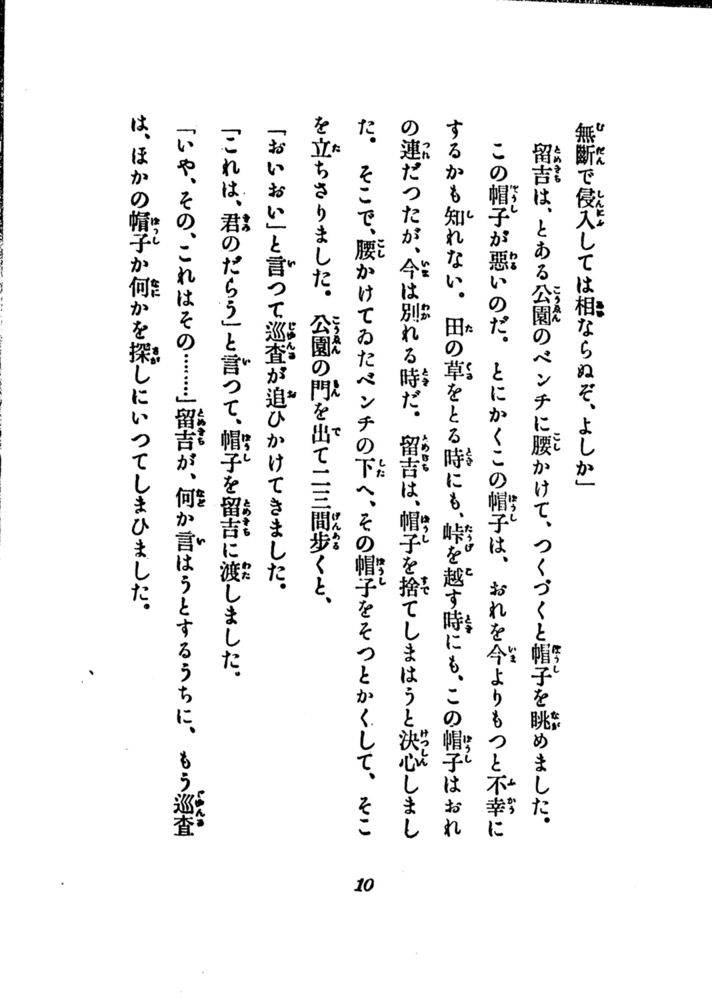 無斷で侵入しては相ならぬぞ、よしか」
留吉は、とある公園のベンチに腰かけて、つくづくと帽子を眺めました。
この帽子が悪いのだ。とにかくこの帽子は、おれを今よりもつと不幸に
するかも知れない。田の草をとる時にも、峠を越す時にも、この帽子はおれ
の連だつたが、今は別れる時だ。留吉は、帽子を捨てしまはうと決心しまし
た。そこで、腰かけてゐたベンチの下へ、その帽子をそつとかくして、そこ
を立ちさりました。公園の門を出て二三間歩くと、
「おいおい」と言つて巡査が追ひかけてきました。
「これは、君のだらう」と言つて、帽子を留吉に渡しました。
「いや、その、これはその………」留吉が、何か言はうとするうちに、もう巡査
は、ほかの帽子か何かを探しにいつてしまひました。
10